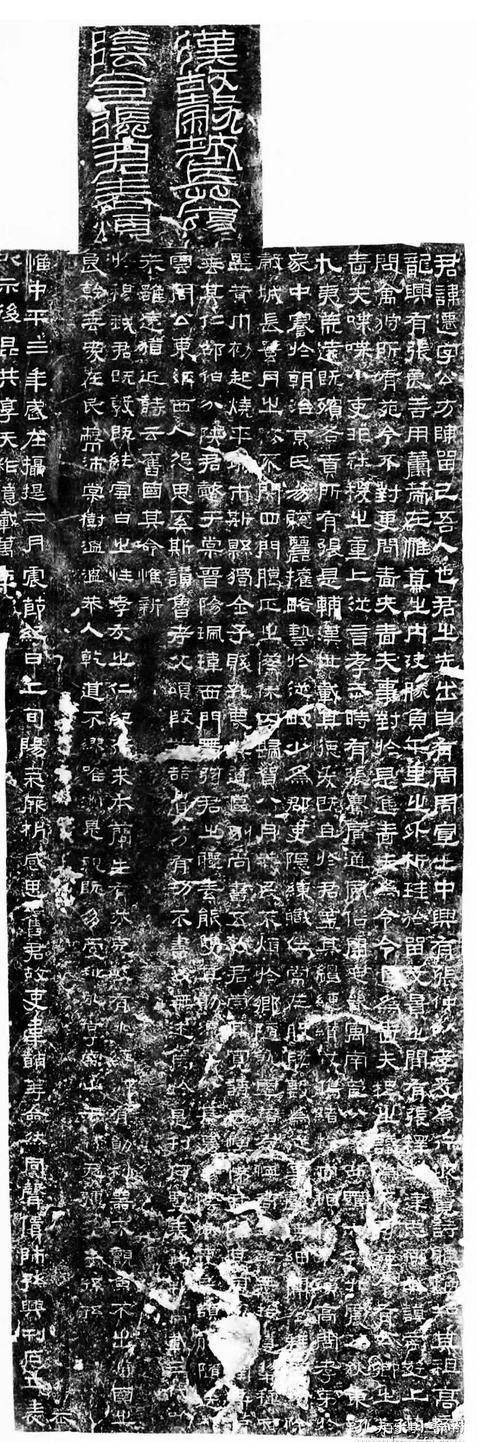 漢故穀城長蕩
陰令張君表頌
君諱遷字公方陳留己吾人也君之先出自有周周宣王中興有張仲以孝友為行披覽詩雅煥知其祖高
龍興有張良善用籌策在帷幕之內決勝負千里之外析珪於留文景之間有張釋之建忠弼之謨帝遊上
問禽狩所有苑令不對更問嗇夫嗇夫事對於是進嗇夫為令令退為嗇夫釋之議為不可苑令有公卿之
嗇夫喋喋小吏非社稷之重上從言孝武時有張騫廣通風俗開定畿寓南苞八蠻西羈六戎北震五狄東
九夷荒遠既殯各貢所有張是輔漢世載其德爰既且於君蓋其繵縺纘戎鴻緒牧守相係不殞高問孝弟於
家中謇於朝治京氏易聰麗權略藝於從畋少為郡吏隱練職位常在股肱數為從事聲無細聞徵拜郎
穀城長蠶月之務不閉四門臘正之僚休囚歸賀八月筭民不煩於鄉隨就虛落存恤高年路無拾遺犁種
野黃巾初起燒平城市斯縣獨全子賤孔蔑其道區別尚書五教君崇其寬詩云愷悌君隆其恩東里潤色君
垂其仁邵伯分陝君懿于棠晉陽珮瑋西門帶弦君之體素能雙其勛流化八基遷蕩陰令吏民頡頏隨送如
雲周公東征西人怨思奚斯讚魯考父頌殷前喆遺芳有功不書後無述焉於是刊石豎表銘勒萬載三代以
來雖遠猶近詩云舊國其命惟新
於穆我君既敦既純雪白之性孝友之仁紀行來本蘭生有芬克岐有兆綏御有勛利器不覿魚不出淵國之
良幹垂愛在民蔽沛棠樹溫溫恭人乾道不繆唯淑是親既多受祉永享南山干祿無疆子子孫孫
惟中平三年歲在攝提二月震節紀日上旬陽氣厥析感思舊君故吏韋萌等僉然同聲賃師孫興刊石立表
以示後昆共享天祚億載萬年